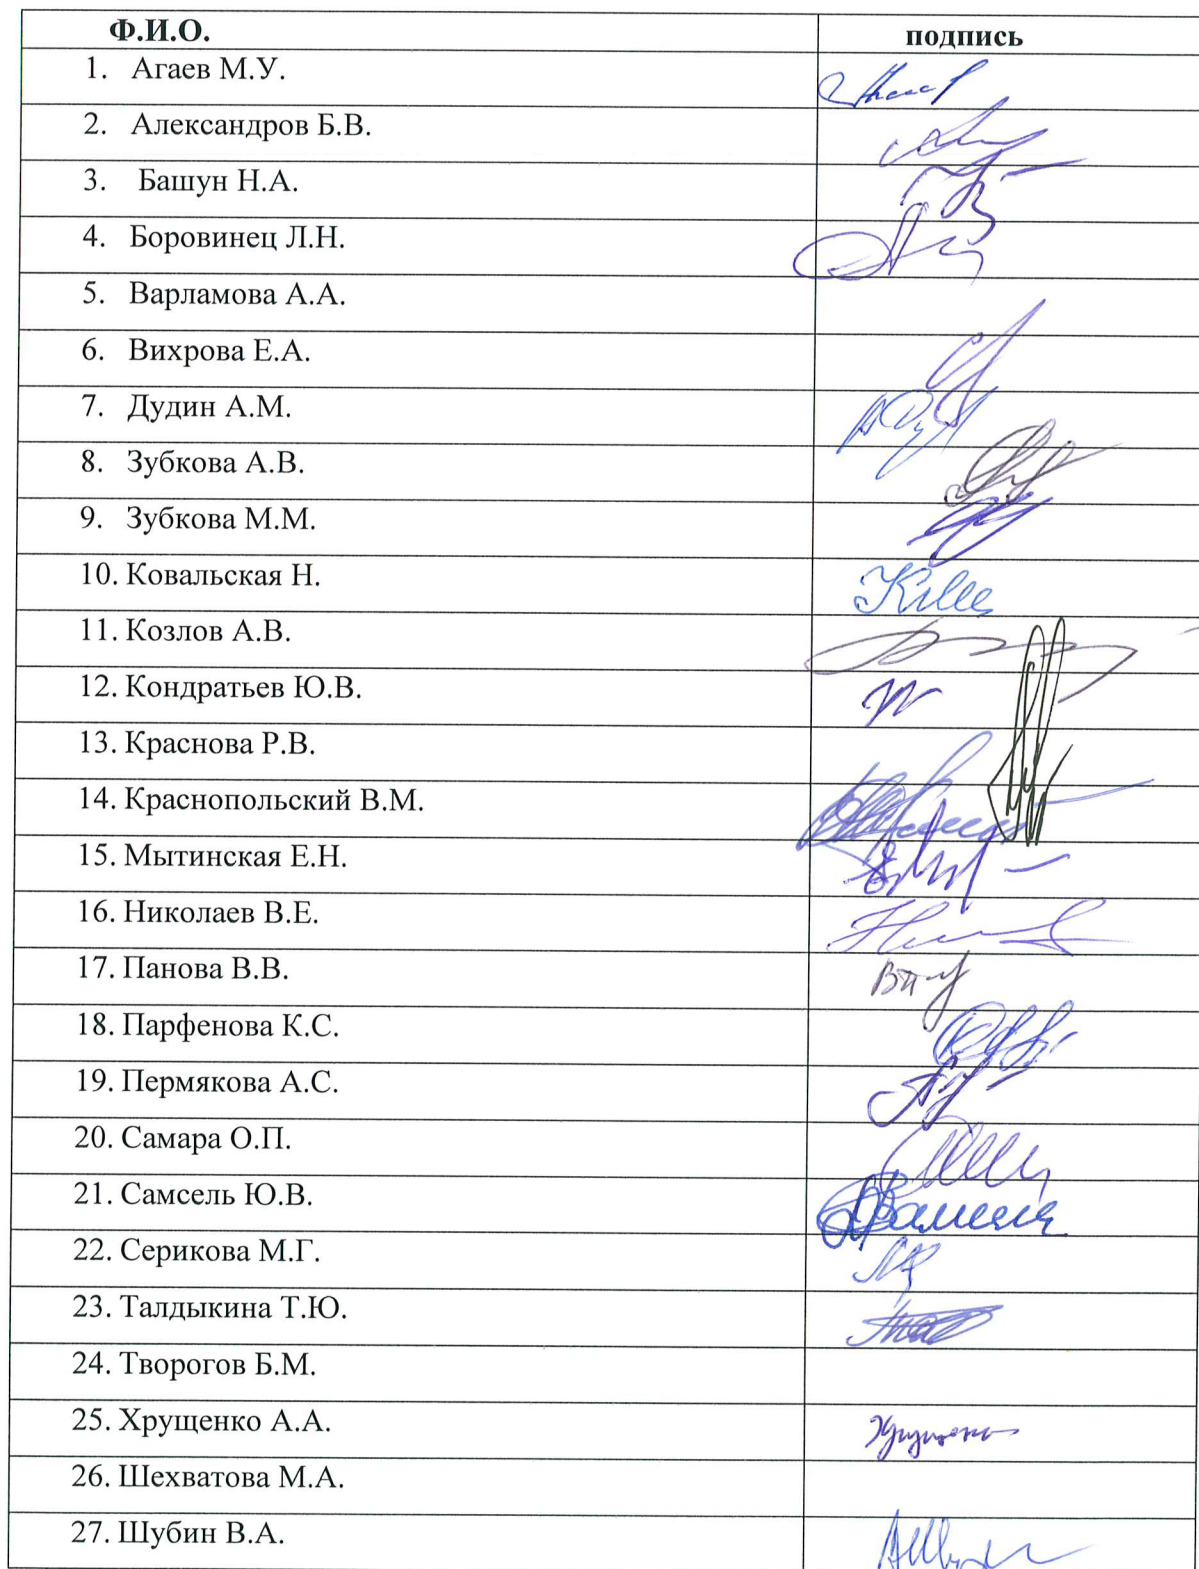 Ф.И.О. подпись
1. Агаев М.У.
2. Александров Б.В.
3. Башун Н.А.
4. Боровинец Л.Н.
5. Варламова А.А.
6. Вихрова Е.А.
7. Дудин А.М.
8. Зубкова А.В.
9. Зубкова М.М.
10. Ковальская Н.
11. Козлов А.В.
12. Кондратьев Ю.В.
13. Краснова Р.В.
14. Краснопольский В.М.
15. Мытинская Е.Н.
16. Николаев В.Е.
17. Панова В.В.
18. Парфенова К.С.
19. Пермякова А.С.
20. Самара О.П.
21. Самсель Ю.В.
22. Серикова М.Г.
23. Талдыкина Т.Ю.
24. Творогов Б.М.
25. Хрущенко А.А.
26. Шехватова М.А.
27. Шубин В.А.